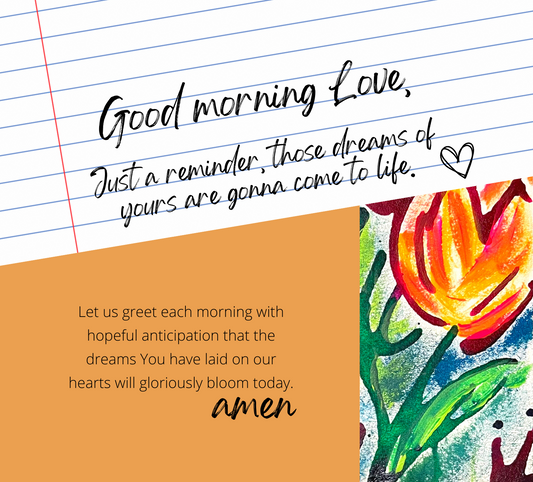 Good morning Love,
Just a reminder, those dreams of
yours are gonna come to life.
Let us greet each morning with
hopeful anticipation that the
dreams You have laid on our
hearts will gloriously bloom today.
amen